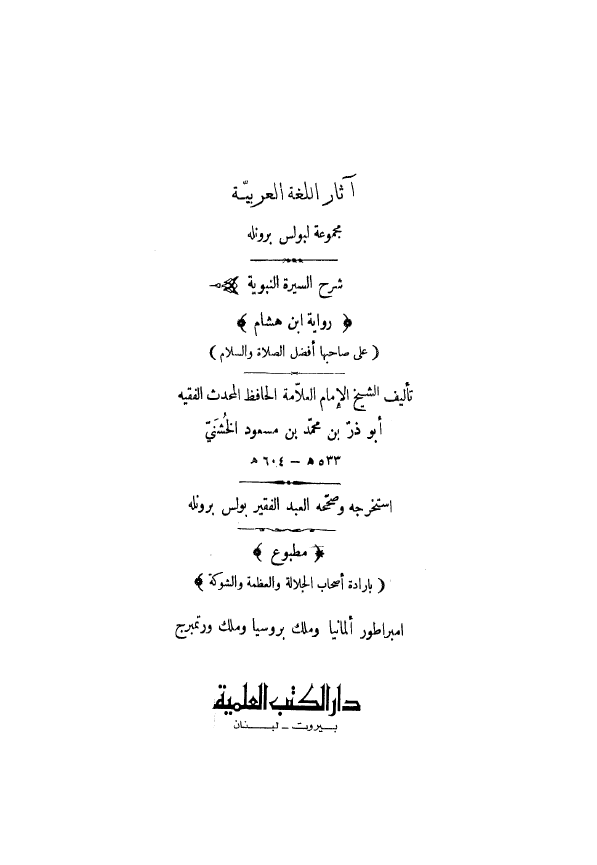 آثار اللغة العربيّة
مجموعة لبولس برونله
شرح السيرة النبوية
﴿ رواية ابن هشام ﴾
( على صاحبها أفضل الصلاة والسلام )
تأليف الشيخ الإمام العلّامة الحافظ المحدث الفقيه
أبو ذرّ بن محمّد بن مسعود الخُشَنَيّ
٥٣٣ ھ – ٦٠٤ ھ
استخرجه وصحّحه العبد الفقير بولس برونله
﴿ مطبوع ﴾
( بارادة أصحاب الجلالة والعظمة والشوكة ﴾
امبراطور ألمانيا وملك بروسيا وملك ورتمبرج
دار الكتب العلمية
بيروت - لبنان